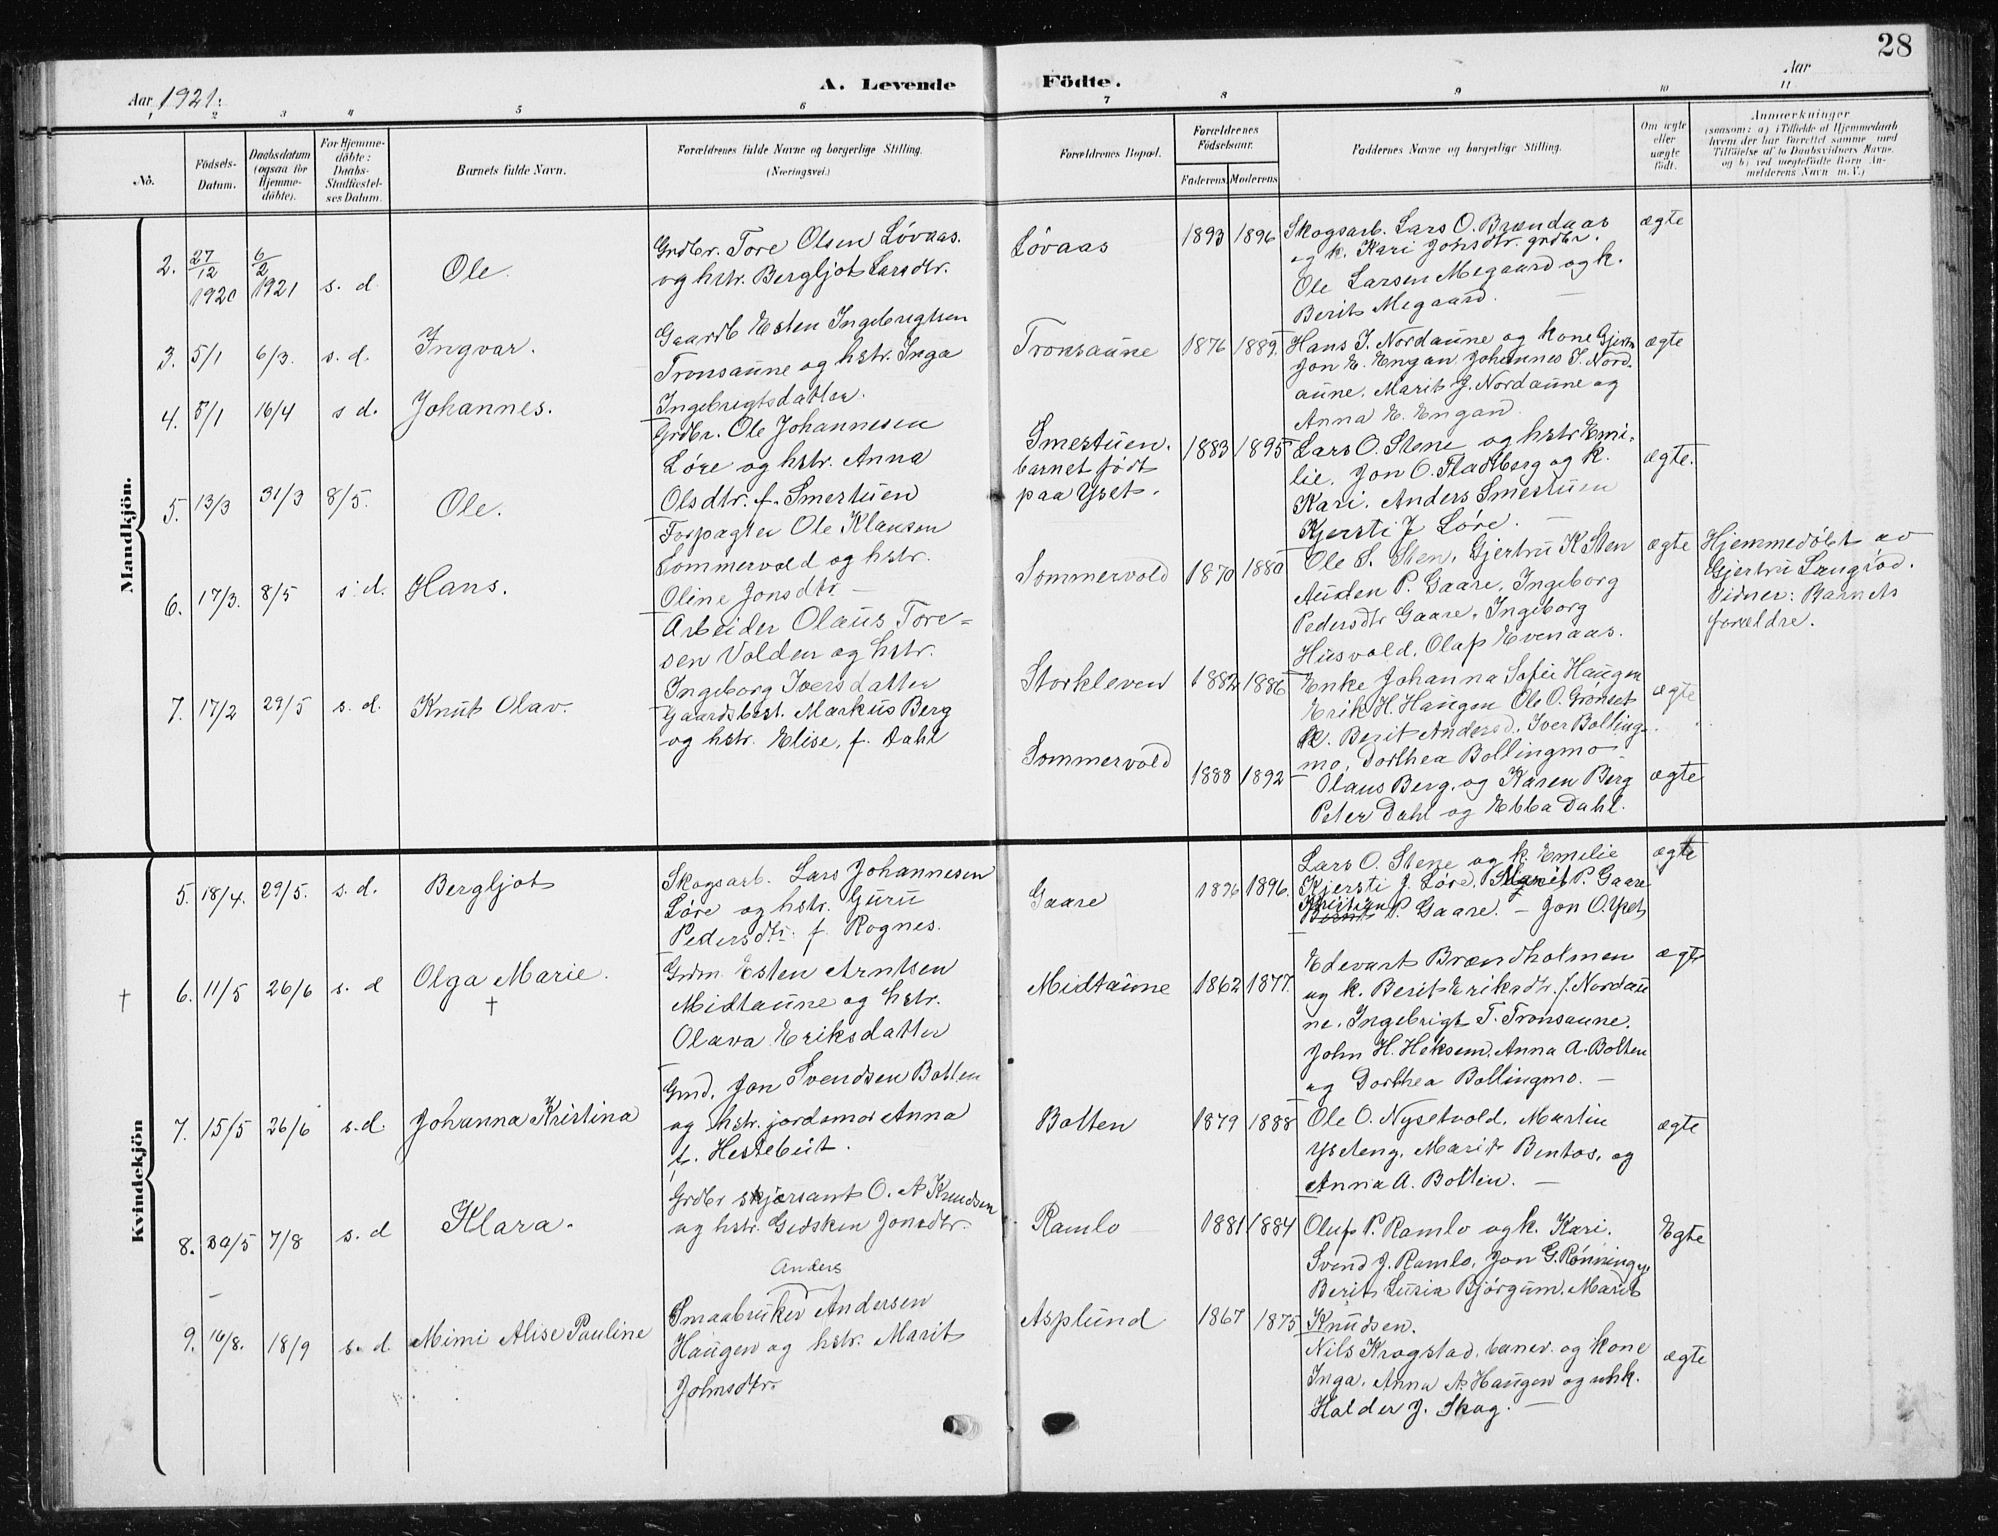 28
Aar 1921.
A. Levende Födte.
Aar
1 2 3 4 5 6 7 8 9 10 11
No.
Födsels-Datum.
Daabsdatum (ogsaa for Hjemmedöbte).
For Hjemmedöbte: Daabs-Stadfæstelses Datum.
Barnets fulde Navn.
Forældrenes fulde Navne og borgerlige Stilling. (Næringsvei.)
Forældrenes Bopæl.
Forældrenes Födselsaar.
Faderens. Moderens.
Faddernes Navne og borgerlige Stilling.
Om ægte eller uægte födt.
Anmærkninger
(saasom: a) i Tilfælde af Hjemmedaab
hvem der har forrettet samme med
Tilföielse af to Daabsvidners Navne.
og b) ved uægtefödte Börn An-
melderens Navn m. V.)
Mandkjön.
2. 27/12 1920 6/2 1921 s. d. Ole.
Grdbr. Tore Olsen Løvaas.
og hstr. Bergljot Larsdtr.
Løvaas 1893 1896
Skogsarb. Lars O. Brændaas
og k. Kari Jonsdtr. grdbr.
Ole Larsen Megaard og k.
Berit Megaard. —
ægte
3. 5/1 6/3. s. d. Ingvar.
Gaardb Esten Ingebrigtsen
Tronsaune og hstr. Inga
Ingebrigtsdatter.
Tronsaune 1876 1889.
Hans J. Nordaune og kone Gjertr
Jon E. Engan Johannes J. Nord-
aune, Marit J. Nordaune og
Anna E. Engan.
ægte
4. 5/1 16/4 s d. Johannes.
Grdbr. Ole Johannesen
Løre og hstr. Anna
Olsdtr. f. Smestuen
Smestuen.
barnet født
paa Yset.
1883 1895
Lars O. Stene og hstr Emi-
lie, Jon O. Fladberg og k.
Kari. Anders Smestuen
Kjersti J Løre. —
ægte.
5. 13/3 31/3 8/5. Ole.
Forpagter Ole Klausen
Sommervold og hstr.
Oline Jonsdtr —
Sommervold 1870 1880
Ole S. Sten, Gjertru K Sten
Auden P. Gaare, Ingeborg
Pedersdtr Gaare, Ingeborg
Husvold, Olaf Evenaas.
ægte
Hjemmedøbt av
Gjertru Langrød.
Vidner: Barnets
forældre.
6. 17/3. 8/5 s. d. Hans.
Arbeider Olaus Tore=
sen Volden og hstr.
Ingeborg Iversdatter
Storkleven 1882 1886
Enke Johanna Sofie Haugen
Erik H. Haugen Ole O. Grønset
k. Berit Andersd. Iver Bolling-
mo, Dorthea Bollingmo
ægte
7. 17/2 29/5 s. d. Knut Olav.
Gaardsbest. Markus Berg
og hstr. Elise, f. Dahl
Sommervold
1888 1892
Olaus Berg, og Karen Berg
Peter Dahl og Ebba Dahl.
ægte
Kvindekjön
5. 18/4. 29/5. s. d. Bergljot
Skogsarb. Lars Johannesen
Løre og hstr. Guru
Pedersdtr. f. Rognes.
Gaare 1896 1896.
Lars O. Stene og k. Emilie
Kjersti J. Løre, Marit P. Gaare
Kristian P. Gaare. — Jon O. Yset
ægte
† 6. 11/5 26/6 s. d Olga Marie. †
Grdm. Esten Arntsen
Midtaune og hstr.
Olava Eriksdatter
Midtaune 1862 1877.
Edevart Brændholmen
og k. Berit Eriksdtr. f. Nordau
ne. Ingebrigt T. Tronsaune.
John H. Heksem, Anna A. Bolten
og Dorthea Bollingmo. —
ægte
7. 15/5 26/6 s. d. Johanna Kristina
Grud. Jon Svendsen Bolten
og hstr. jordemor Anna
f. Hestebeit.
Bolten 1879 1888
Ole O. Nysetvold. Martin
Yseteng, Marit Bentos, og
Anna A. Bolten. —
ægte
8. 30/5 7/8 s. d Klara.
Grdbr skjørsant O. A Knudsen
og hstr. Gidsken Jonsdtr.
Ramlo 1881 1884
Oluf P. Ramlo og k. Kari.
Svend J. Ramlo, Jon G. Rønningen
Berit Lusia Bjørgum. Marit
Knudsen.
Egte
9. 16/8. 18/9 s. d. Mimi Alise Pauline
Anders
Smaabruker Andersen
Haugen og hstr. Marit
Johnsdtr.
Asplund 1867 1875
Nils Krogstad, banev. og kone
Inga, Anna A. Haugen og uhk.
Halder J. Skog. —
ægte